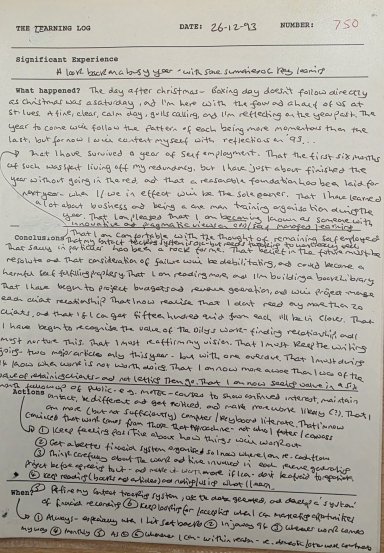 THE LEARNING LOG DATE: 26-12-93 NUMBER: 750
Significant Experience
A look back on a busy year - with some summaries of key learning
What happened? The day after christmas - Boxing day doesn't follow directly
as christmas was a saturday, and I'm here with the four and a half of us at
St Ives. A fine, clear, calm day, gulls calling, and I'm reflecting on the year past. The
year to come will follow the pattern of each being more momentous than the
last, but for now I will content myself with reflections on '93...
That I have survived a year of self employment. That the first six months
of such was spent living off my redundancy, but I have just about finished the
year without going in the red, and that a reasonable foundation has been laid for
next year - when I/we in effect will be the sole earner. That I have learned
a lot about business and being a one man training organisation during the
year. That I'm pleased that I am becoming known as someone with
innovative and pragmatic views on self managed learning
That I am comfortable with the thought of remaining self employed
Conclusions
That Sally in particular has been a rock for me. That belief in the future must be
resolute and that consideration of failure will be debilitating, and could become a
harmful self fulfilling prophesy. That I am reading more, and I'm building a good library.
That I have begin to project budgets and revenue generation, and will project manage
each client relationship. That I now realise that I don't need any more than 20
clients, and that if I can get fifteen hundred quid from each I'll be in clover. That
I have begin to recognise the value of the oily work-finding relationship, and I
must nurture this. That I must reaffirm my vision. That I must keep the writing
going - two major articles only this year - but with one overdue. That I must
know when work is not worth doing. That I am now more aware than I was of the
value of retaining clients - and not letting them go. That I am now seeing value in a six
month follow up of public - e.g. MRTC - courses to show continued interest, maintain
Actions contact, be different and get noticed, and make more work likely (?). That I
am more (but not sufficiently) computer/keyboard literate. That I'm now
convinced that work comes from those that approach me - not who I pester/canvass
① Keep feeling positive about how things will work out
② Get a better financial system organised so I know where I am re. cashflow
③ Think carefully about the work and hours involved in each revenue generating
project before agreeing to it - and make it worth more if I can. Don't be afraid to
④ Keep reading (books and articles) and noting/using what I learn
⑤ Refine my contact tracking system, use the data generated, and develop a system
When? of financial recording ⑥ Keep looking for
① Always - especially when I hit set backs ② In January 94 ③ Whenever work comes
my way ④ Monthly ⑤ As ② ⑥ Whenever I can - within reason